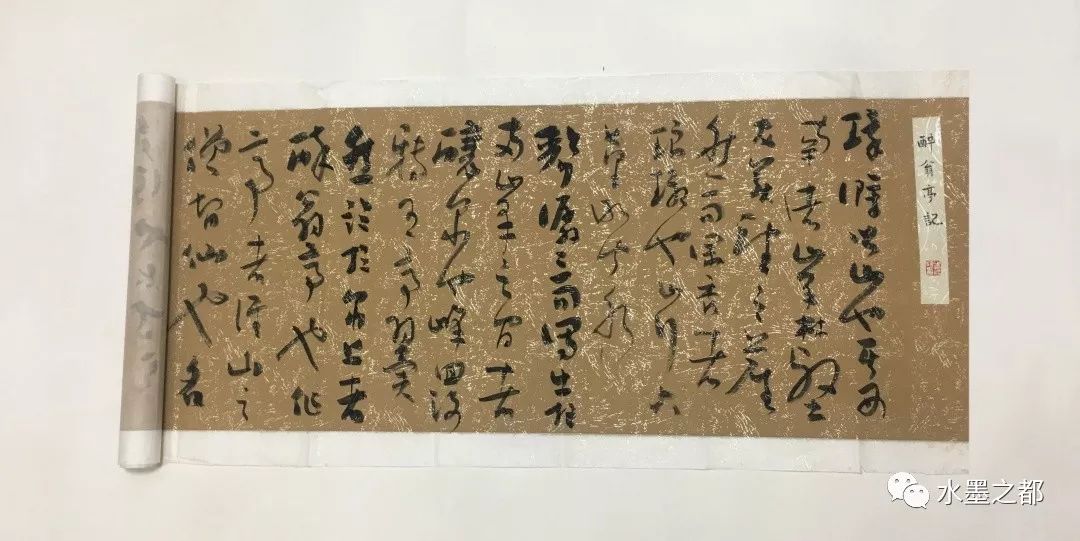 醉翁亭記
環滁皆山也其西
南諸峯林壑
尤美望之蔚
然而深秀者
琅琊也山行六
聲潺潺而瀉出於
兩峯之間者
釀泉也峰回路
轉有亭翼
然臨於泉上者
醉翁亭也作
亭者誰山之
僧智仙也名
水墨之都